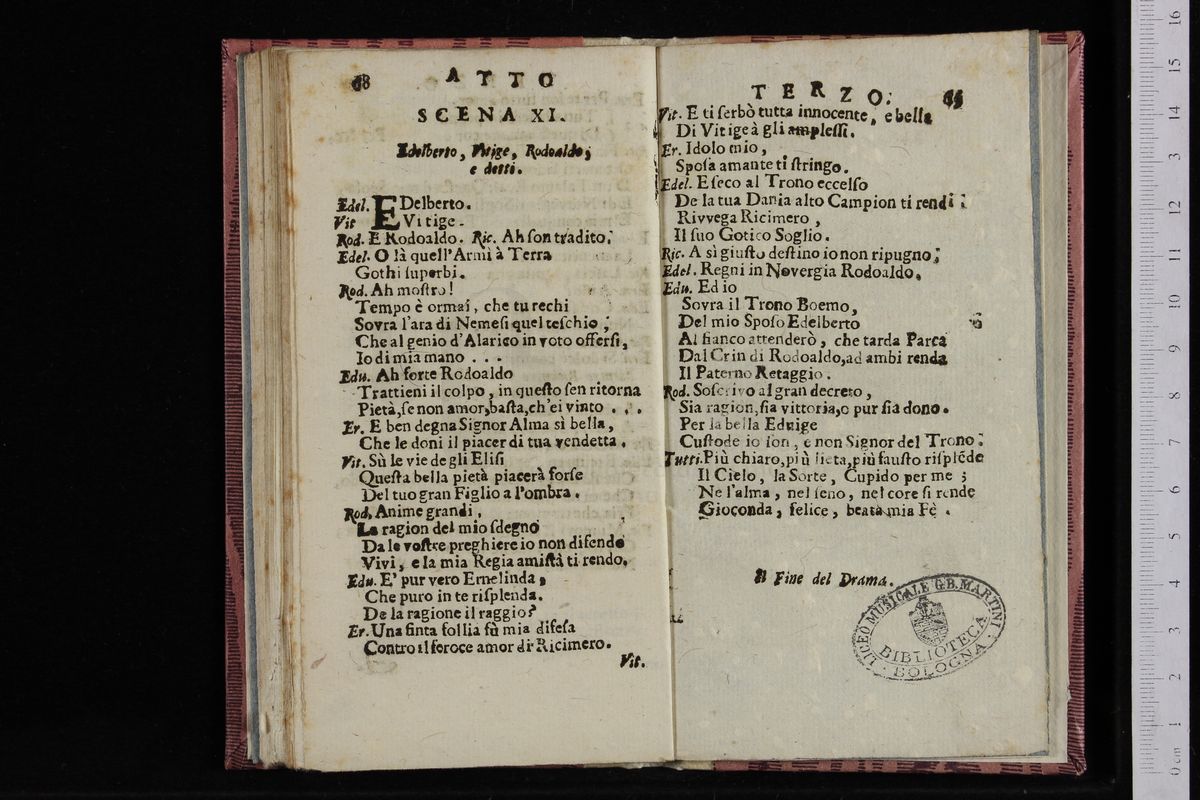 68
ATTO
SCENA XI.
Edelberto, Vitige, Rodoaldo,
e detti.
Edel. EDelberto.
Vit Vitige.
Rod. E Rodoaldo. Ric. Ah ſon tradito.
Edel. O là quell'Armi à Terra
Gothi ſuperbi.
Rod. Ah moſtro!
Tempo è ormai, che tu rechi
Sovra l'ara di Nemeſi quel teſchio,
Che al genio d'Alarico in voto offerſi,
Io di mia mano . . .
Edu. Ah forte Rodoaldo
Trattieni il colpo, in queſto ſen ritorna
Pietà, ſe non amor, baſta, ch'ei vinto . . .
Er. E ben degna Signor Alma sì bella,
Che le doni il piacer di tua vendetta.
Vit. Sù le vie degli Eliſi
Queſta bella pietà piacerà forſe
Del tuo gran Figlio a l'ombra.
Rod. Anime grandi,
La ragion del mio ſdegno
Da le voſtre preghiere io non difendo
Vivi, e la mia Regia amiſtà ti rendo.
Edu. E' pur vero Ernelinda,
Che puro in te riſplenda.
De la ragione il raggio?
Er. Una finta follia fù mia difeſa
Contro il feroce amor di Ricimero.
Vit.
TERZO.
Vit. E ti ſerbò tutta innocente, e bella
Di Vitige à gli ampleſſi.
Er. Idolo mio,
Spoſa amante ti ſtringo.
Edel. E ſeco al Trono eccelſo
De la tua Dania alto Campion ti rendi;
Rivvega Ricimero,
Il ſuo Gotico Soglio.
Ric. A sì giuſto deſtino io non ripugno;
Edel. Regni in Novergia Rodoaldo.
Edu. Ed io
Sovra il Trono Boemo,
Del mio Spoſo Edelberto
Al fianco attenderò, che tarda Parca
Dal Crin di Rodoaldo, ad ambi renda
Il Paterno Retaggio.
Rod. Soſcrivo al gran decreto,
Sia ragion, ſia vittoria, o pur ſia dono.
Per la bella Eduige
Cuſtode io ſon, e non Signor del Trono.
Tutti. Più chiaro, più lieta, più fauſto riſplẽde
Il Cielo, la Sorte, Cupido per me;
Ne l'alma, nel ſeno, nel core ſi rende
Gioconda, felice, beata mia Fè.
Il Fine del Drama.
LICEO MUSICALE G.B. MARTINI
BIBLIOTECA
BOLOGNA
0 cm 1 2 3 4 5 6 7 8 9 10 11 12 13 14 15 16